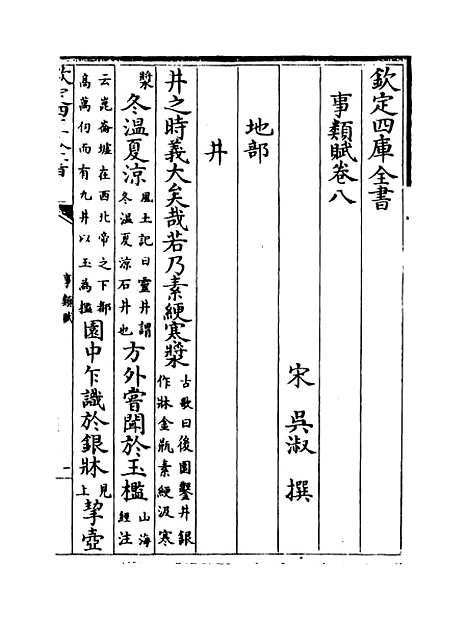 欽定四庫全書
事類賦卷八
宋 吳淑 撰
地部
井
井之時義大矣哉若乃素綆寒漿古歌曰後園鑿井銀作牀金瓶素綆汲寒
漿冬溫夏涼風土記曰靈井謂冬溫夏涼石井也方外嘗聞於玉檻山海經注
云崑崙墟在西北帝之下都高萬仞而有九井以玉為檻園中乍識於銀牀見上挈壺
事類賦